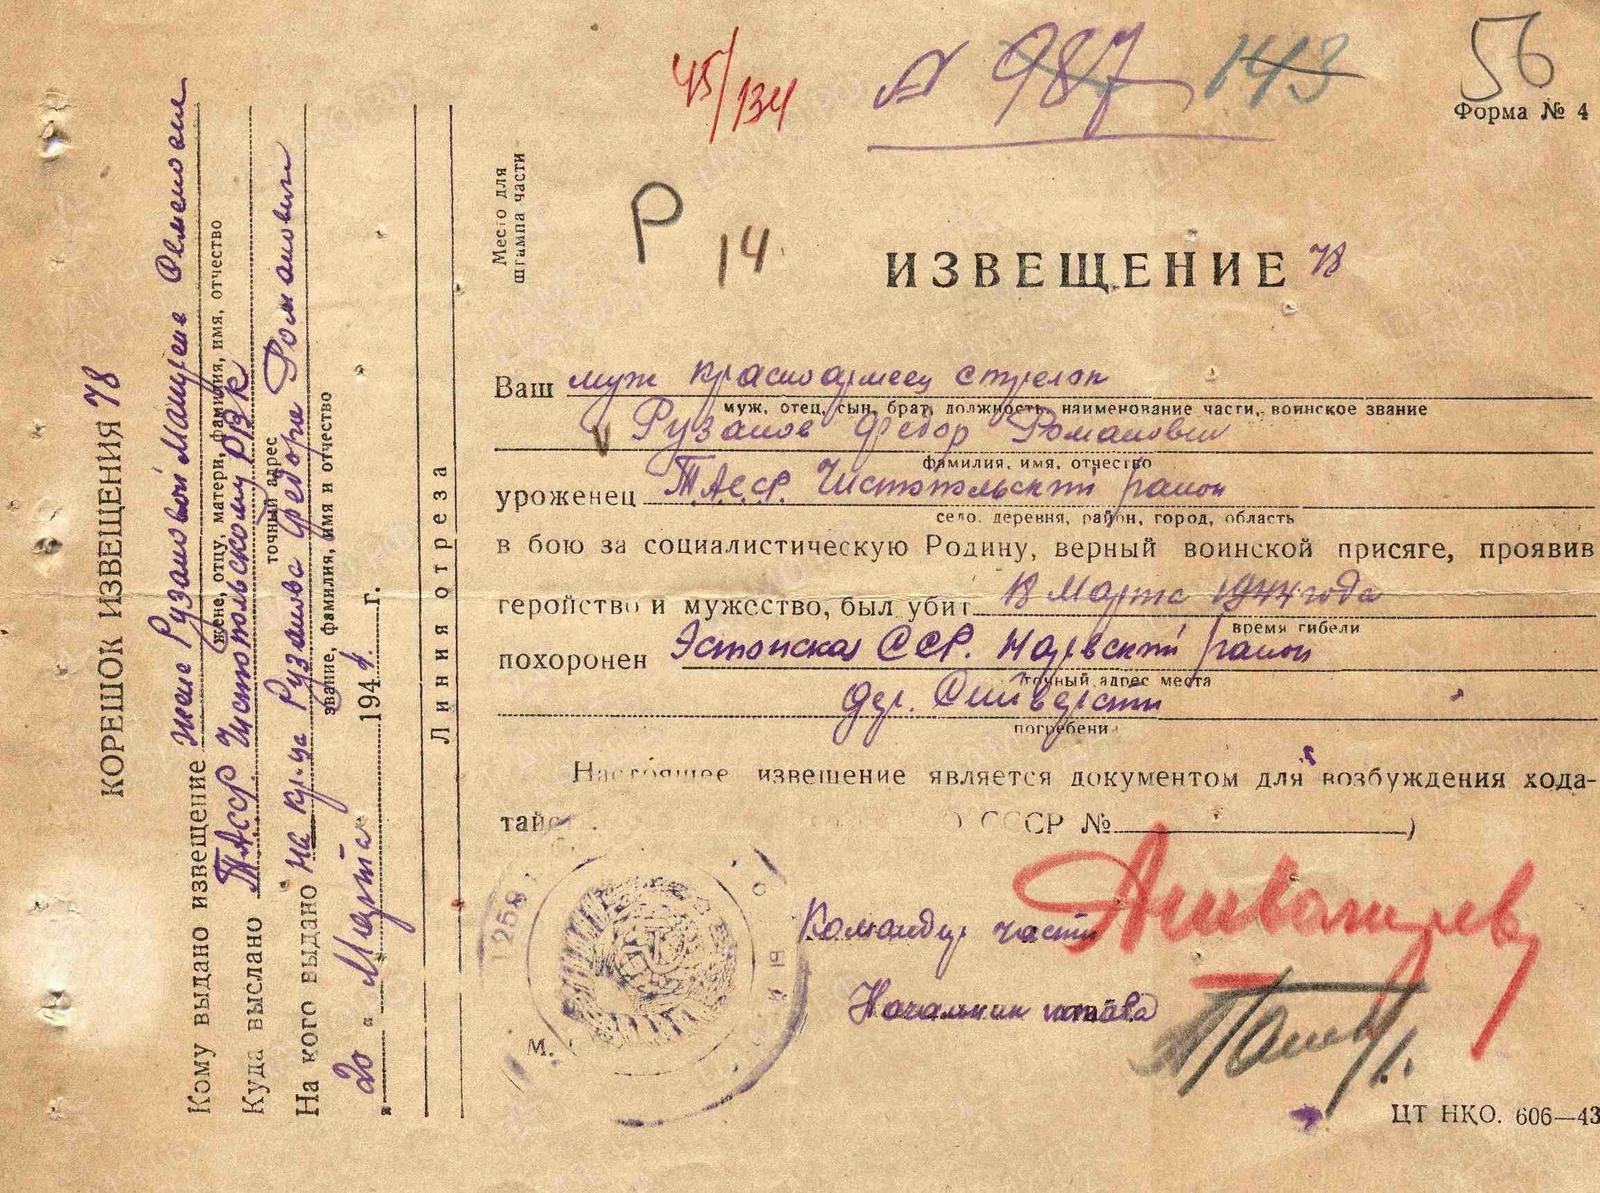 45/134
№ 987 143
56
Форма № 4
Место для
штампа части
Р 14
ИЗВЕЩЕНИЕ 78
Ваш муж красноармеец стрелок
муж, отец, сын, брат, должность, наименование части, воинское звание
Рузанов Федор Романович
фамилия, имя, отчество
уроженец ТАССР. Чистопольский район
село, деревня, район, город, область
в бою за социалистическую Родину, верный воинской присяге, проявив
геройство и мужество, был убит 18 Марта 1944 года
время гибели
похоронен Эстонская ССР. Нарвский район
точный адрес места
дер. Сийверсти
погребения
Настоящее извещение является документом для возбуждения хода-
тайс СССР № )
Командир части
Начальник штаба
М.
ЦТ НКО. 606—43
КОРЕШОК ИЗВЕЩЕНИЯ 78
Кому выдано извещение жене Рузановой
жене, отцу, матери, фамилия, имя, отчество
Куда выслано ТАССР Чистопольскому РВК
точный адрес
На кого выдано на кр-ца Рузанова Федора Романович
звание, фамилия, имя и отчество
„20“ Марта 1944 г.
Линия отреза